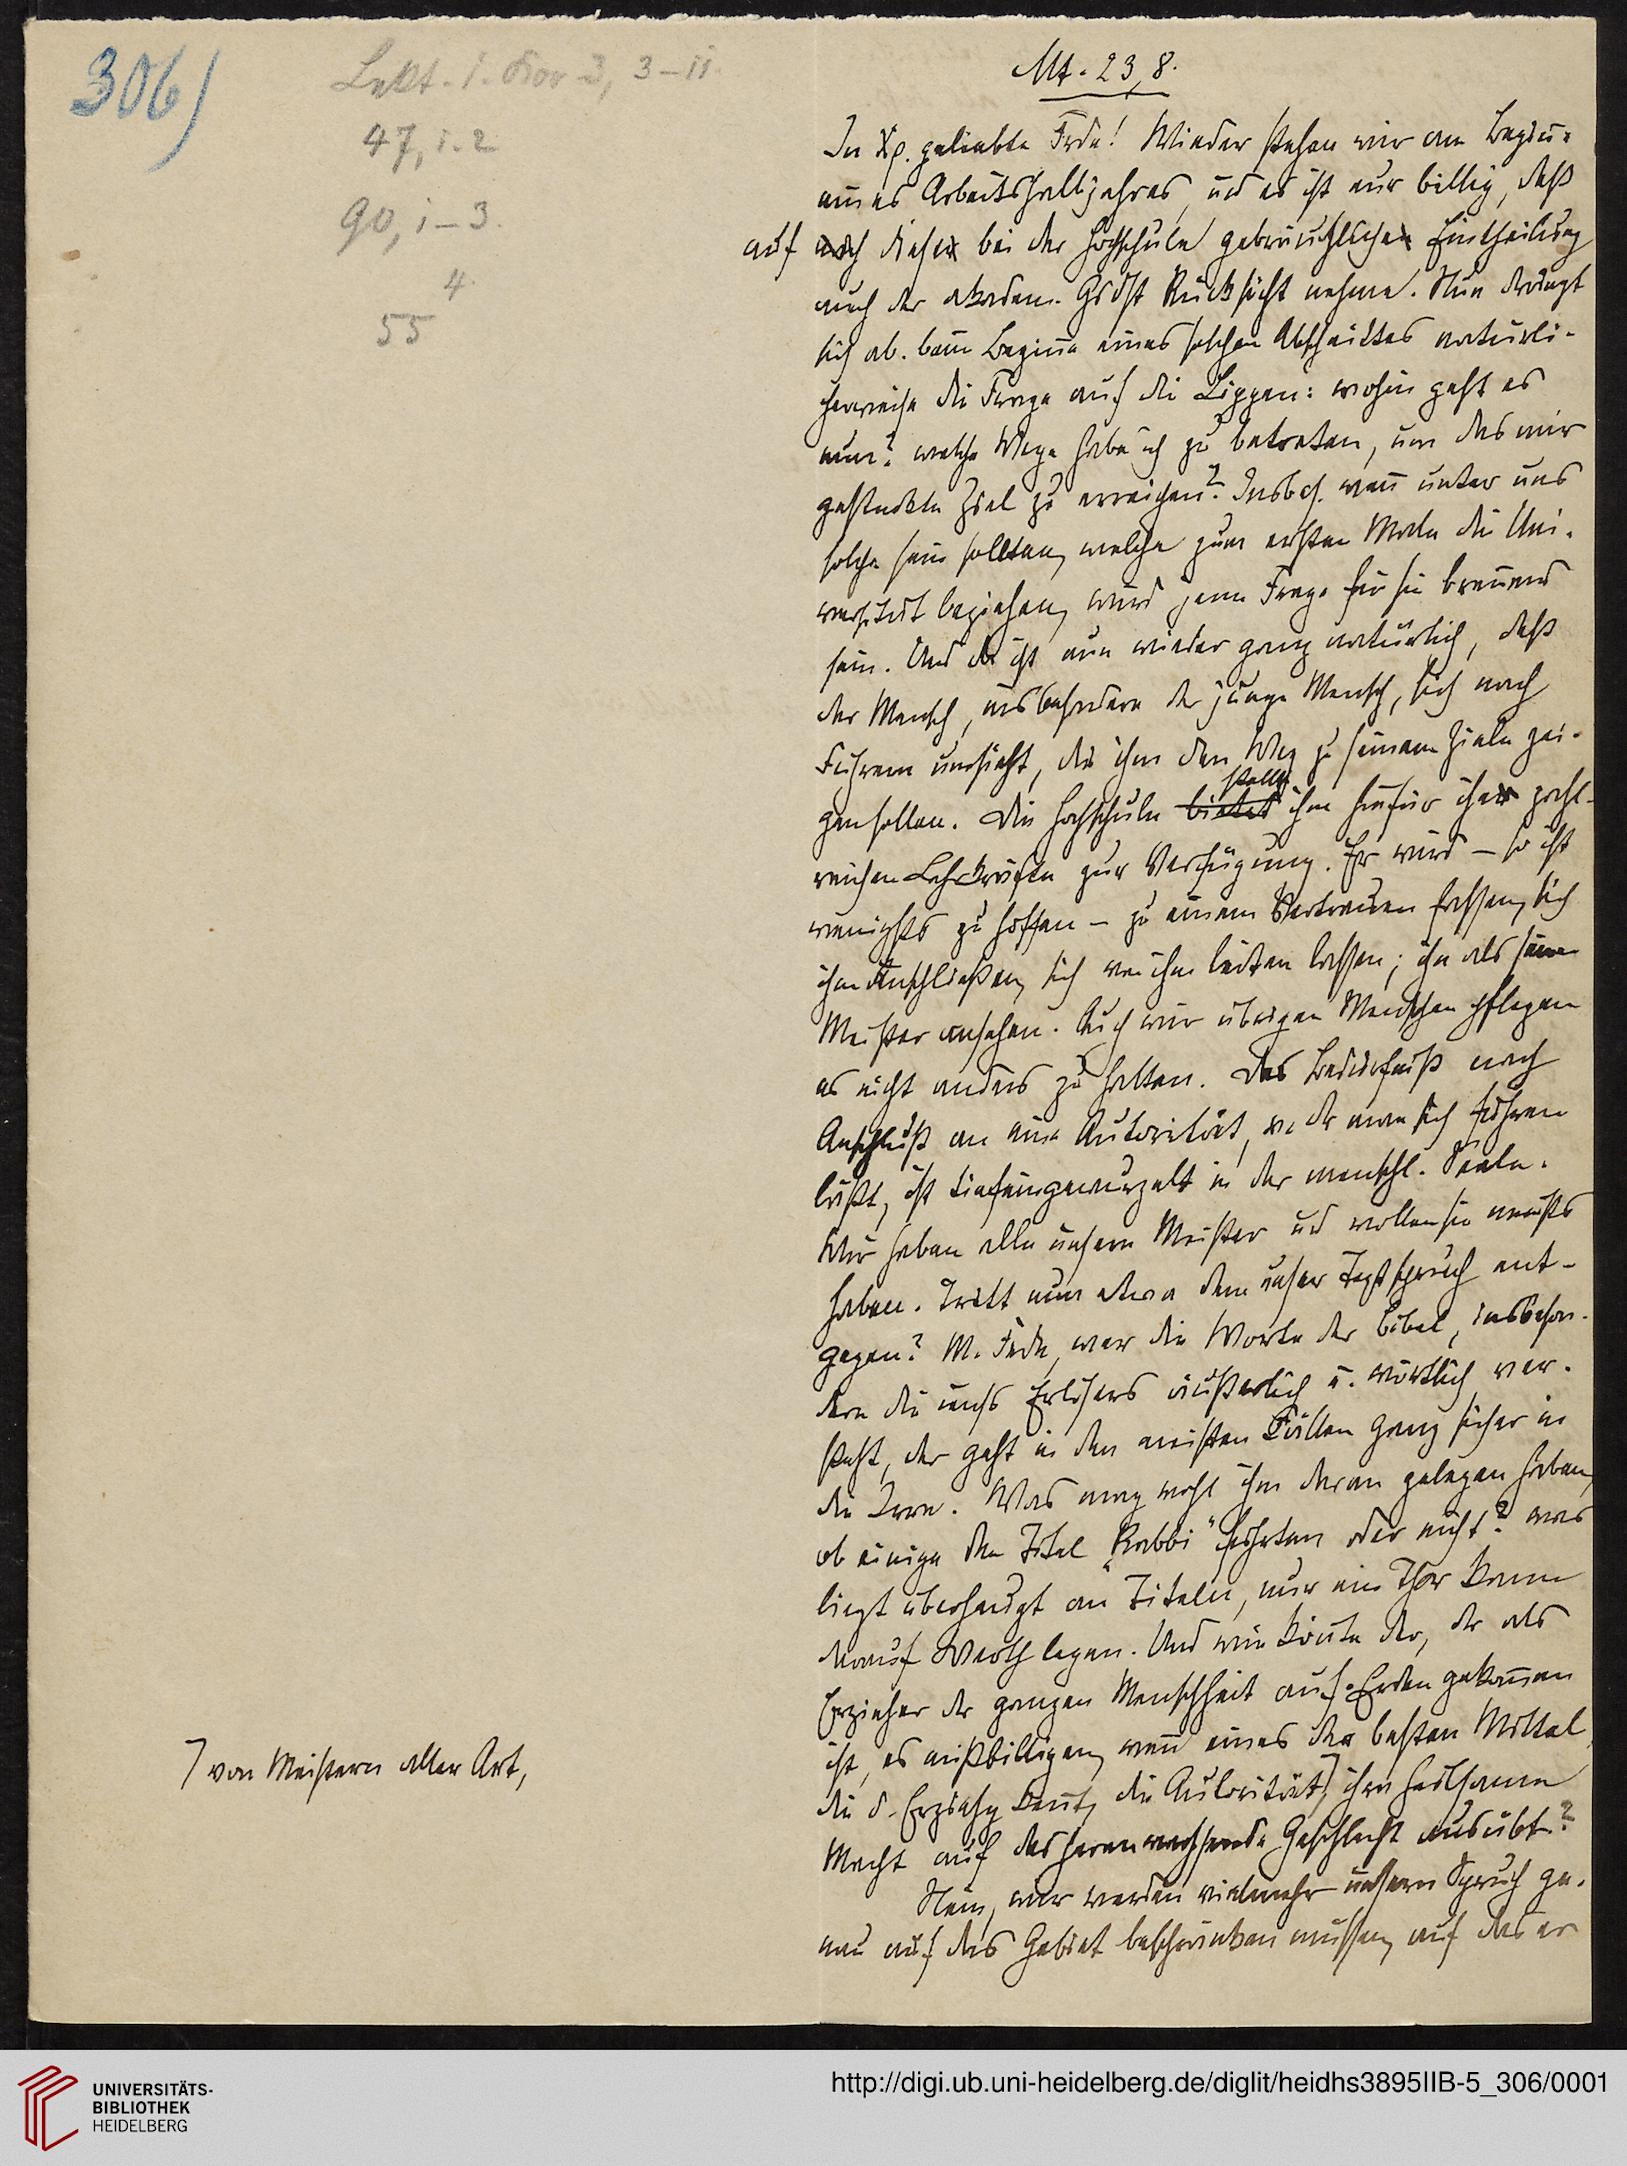 306)
Lekt. 1. Kor 3, 3-11.
47, 1. 2
90, 1-3.
4.
55
Mt. 23, 8.
In Xp. geliebte Frde! Wieder stehen wir am Beginne
eines Arbeitshalbjahres, ud es ist nur billig, daß
auf nach diese bei der Hochschule gebräuchliche Eintheilung
auch der akadem. Gdst Rücksicht nehme. Nun drängt
sich ab. beim Beginne eines solchen Abschnittes natürli-
cherweise die Frage auf die Lippen: wohin geht es
nun? welche Wege habe ich zu betreten, um das mir
gesteckte Ziel zu erreichen? Insbes. wenn unter uns
solche sein sollten, welche zum ersten Male die Uni-
versität beziehen, wird jene Frage für sie brennend
sein. Und da ist nun wieder ganz natürlich, daß
der Mensch, insbesondere der junge Mensch, sich nach
Führern umsieht, die ihm den Weg zu seinem Ziele zei-
gen sollen. Die Hochschule bietet stellt ihm hiefür ihre zahl-
reichen Lehrkräfte zur Verfügung. Er wird – so ist
wenigsts zu hoffen – zu einem Vertrauen fassen, sich
ihm anschließen, sich von ihm leiten lassen; ihn als seinen
Meister ansehen. Auch wir übrigen Menschen pflegen
es nicht anders zu halten. Das Bedürfniß nach
Anschluß an eine Autorität, v. der man sich führen
läßt, ist tiefeingewurzelt in der menschl. Seele.
Wir haben alle unsern Meister ud wollen sie meists
haben. Tritt nun etwa dem unser Textspruch ent-
gegen? M. Frde, wer die Worte der Bibel, insbeson-
dere die unsrs Erlösers äußerlich u. wörtlich ver-
steht, der geht in den meisten Fällen ganz sicher in
die Irre. Was mag wohl ihm daran gelegen haben,
ob einige den Titel „Rabbi“ führten oder nicht? was
liegt überhaupt an Titeln, nur ein Thor kann
darauf Werth legen. Und wie könnte der, der als
Erzieher der ganzen Menschheit auf Erden gekommen
ist, es mißbilligen, wenn eines der besten Mittel,
die d. Erziehg kennt, die Autorität, ihre heilsame
⁊ von Meistern aller Art,
Macht auf das heranwachsende Geschlecht ausübt?
Nein, wir werden vielmehr unsern Spruch ge-
nau auf das Gebiet beschränken müssen, auf das er
UNIVERSITÄTS-
BIBLIOTHEK
HEIDELBERG
http://digi.ub.uni-heidelberg.de/diglit/heidhs3895IIB-5_306/0001